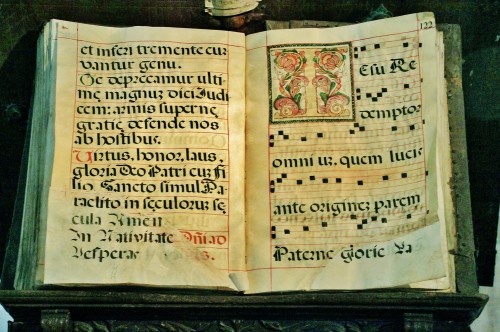 et inferi tremente cur
vantur genu.
Te deprecamur ulti
me magnus diei Judi
cem: armis superne
gratie defende nos
ab hostibus.
Virtus, honor, laus,
gloria Deo Patri cum fi
lio Sancto simul Pa-
raclito in seculorum se
cula Amen
In Nativitate Dñi ad
Vesperas
122
Iesu Re
demptor
omnium. quem lucis
ante originem parem
Paterne glorie Pa